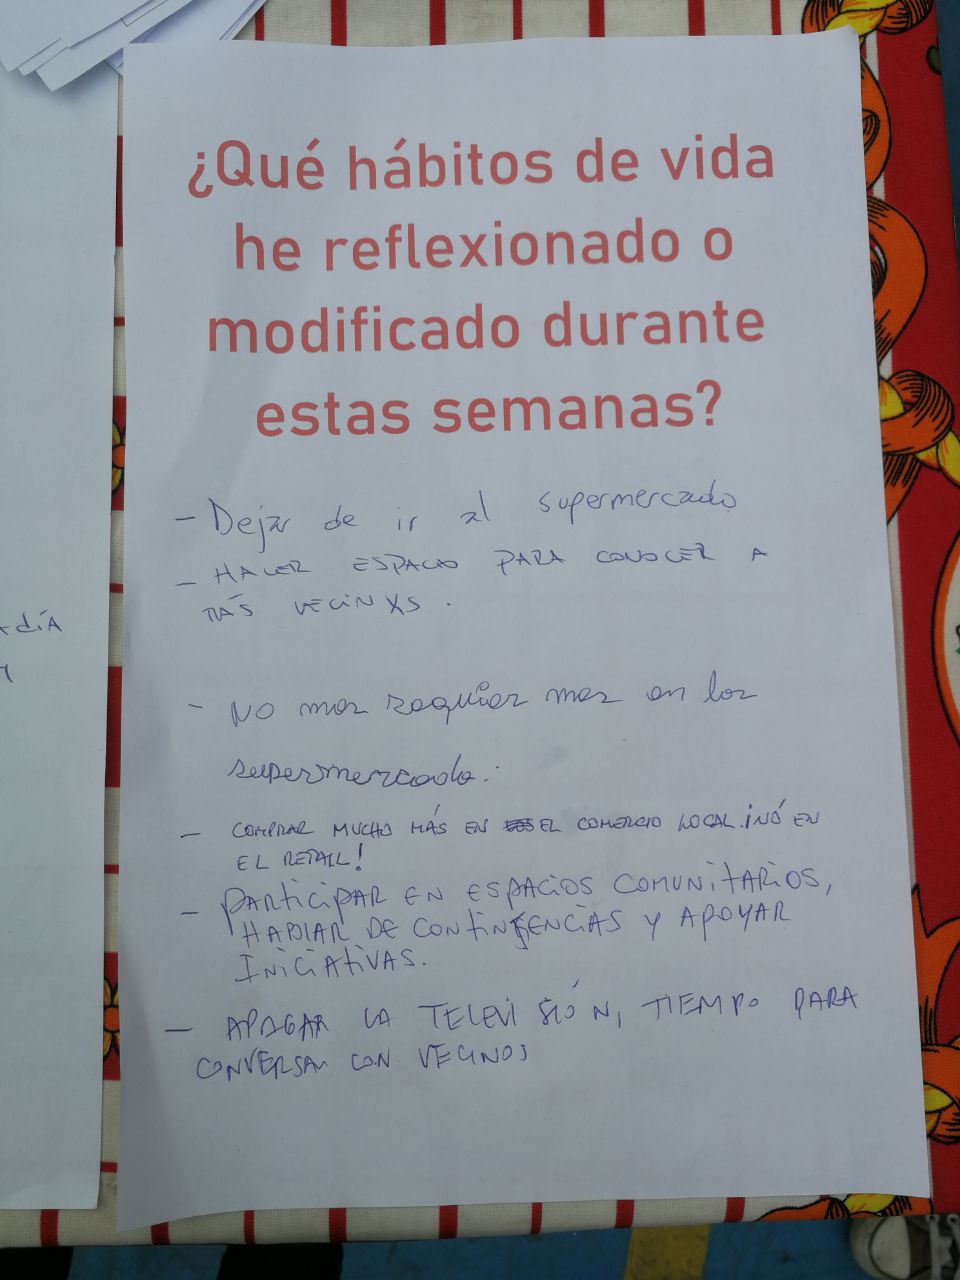 ¿Qué hábitos de vida
he reflexionado o
modificado durante
estas semanas?
- Dejar de ir al supermercado
- HACER ESPACIO PARA CONOCER A
MÁS VECINXS.
- NO mas saquear mas en los
supermercado.
- COMPRAR MUCHO MÁS EN EL COMERCIO LOCAL. ¡NÓ EN
EL RETAIL!
- PARTICIPAR EN ESPACIOS COMUNITARIOS,
HABLAR DE CONTINGENCIAS Y APOYAR
INICIATIVAS.
- APAGAR LA TELEVISIÓN, TIEMPO PARA
CONVERSAR CON VECINOS
día